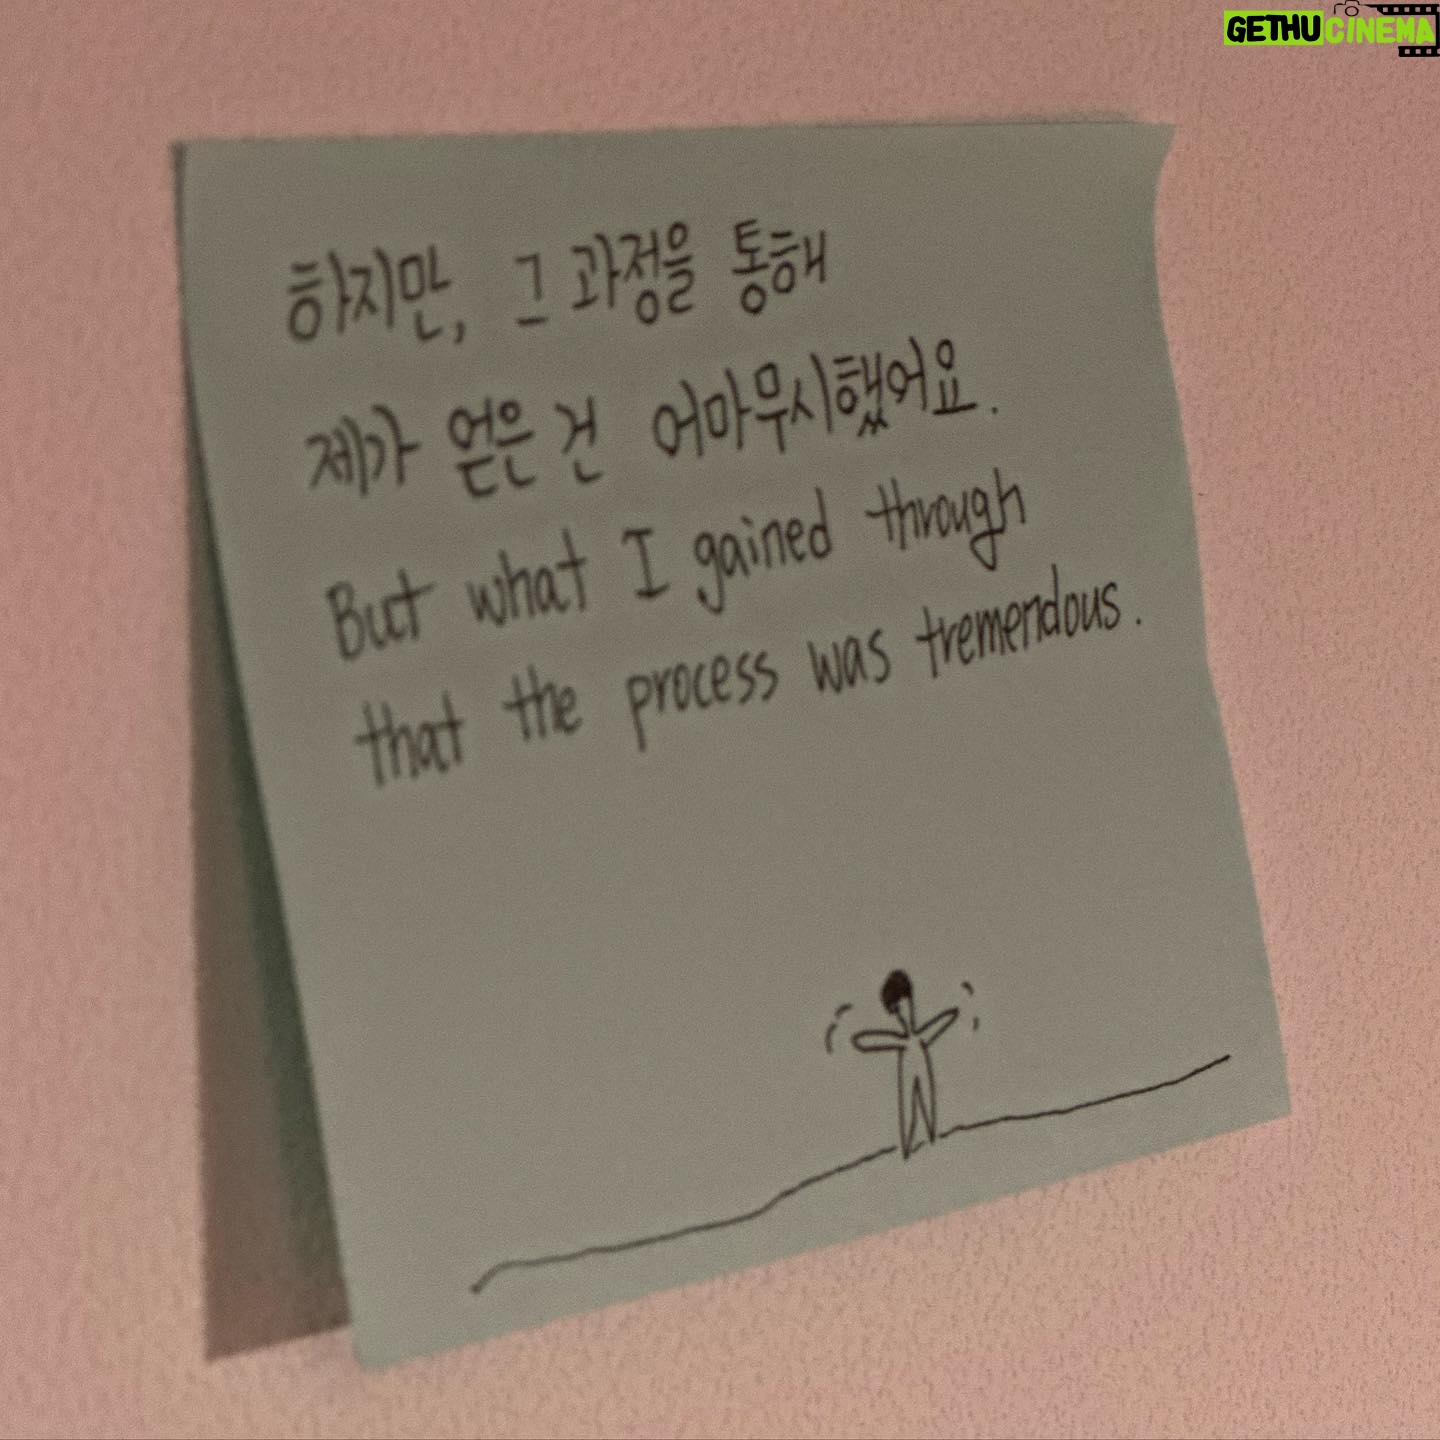 GETHUCINEMA
하지만, 그 과정을 통해
제가 얻은 건 어마무시했어요.
But what I gained through
that the process was tremendous.